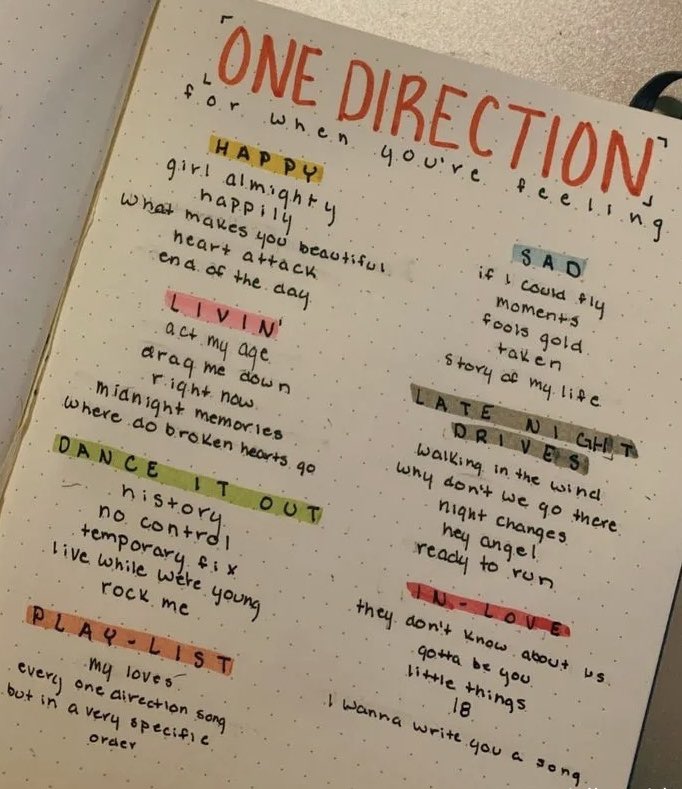 「ONE DIRECTION」
for when you're feeling
HAPPY
girl almighty
happily
what makes you beautiful
heart attack
end of the day
LIVIN'
act my age
drag me down
right now
midnight memories
where do broken hearts go
DANCE IT OUT
history
no control
temporary fix
live while we're young
rock me
PLAY-LIST
my loves
every one direction song
but in a very specific
order
SAD
if I could fly
moments
fools gold
taken
story of my life
LATE NIGHT
DRIVES
walking in the wind
why don't we go there
night changes
hey angel
ready to run
IN-LOVE
they don't know about us
gotta be you
little things
18
I wanna write you a song